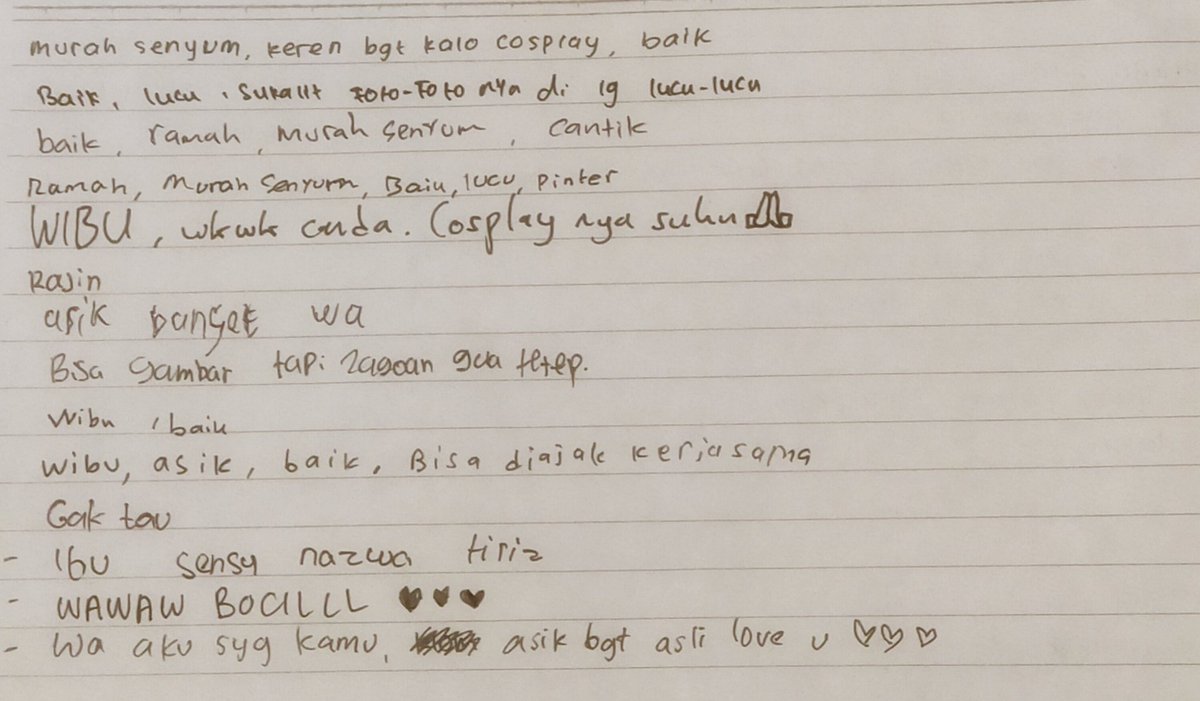 murah senyum, keren bgt kalo cosplay, baik
Baik, lucu, sukaiit Foto-Foto nya di ig lucu-lucu
baik, ramah, murah senyum, cantik
Ramah, Murah senyum, Baik, lucu, pinter
WIBU, wkwk canda. Cosplay nya suhu
Rajin
asik banget wa
Bisa gambar tapi Jagoan gua tetep.
Wibu, baik
wibu, asik, baik, Bisa diajak kerjasama
Gak tau
- Ibu sensy nazwa
- WAWAW BOCILLL ♥♥♥
- Wa aku syg kamu, asik bgt asli love u ♡♡♡